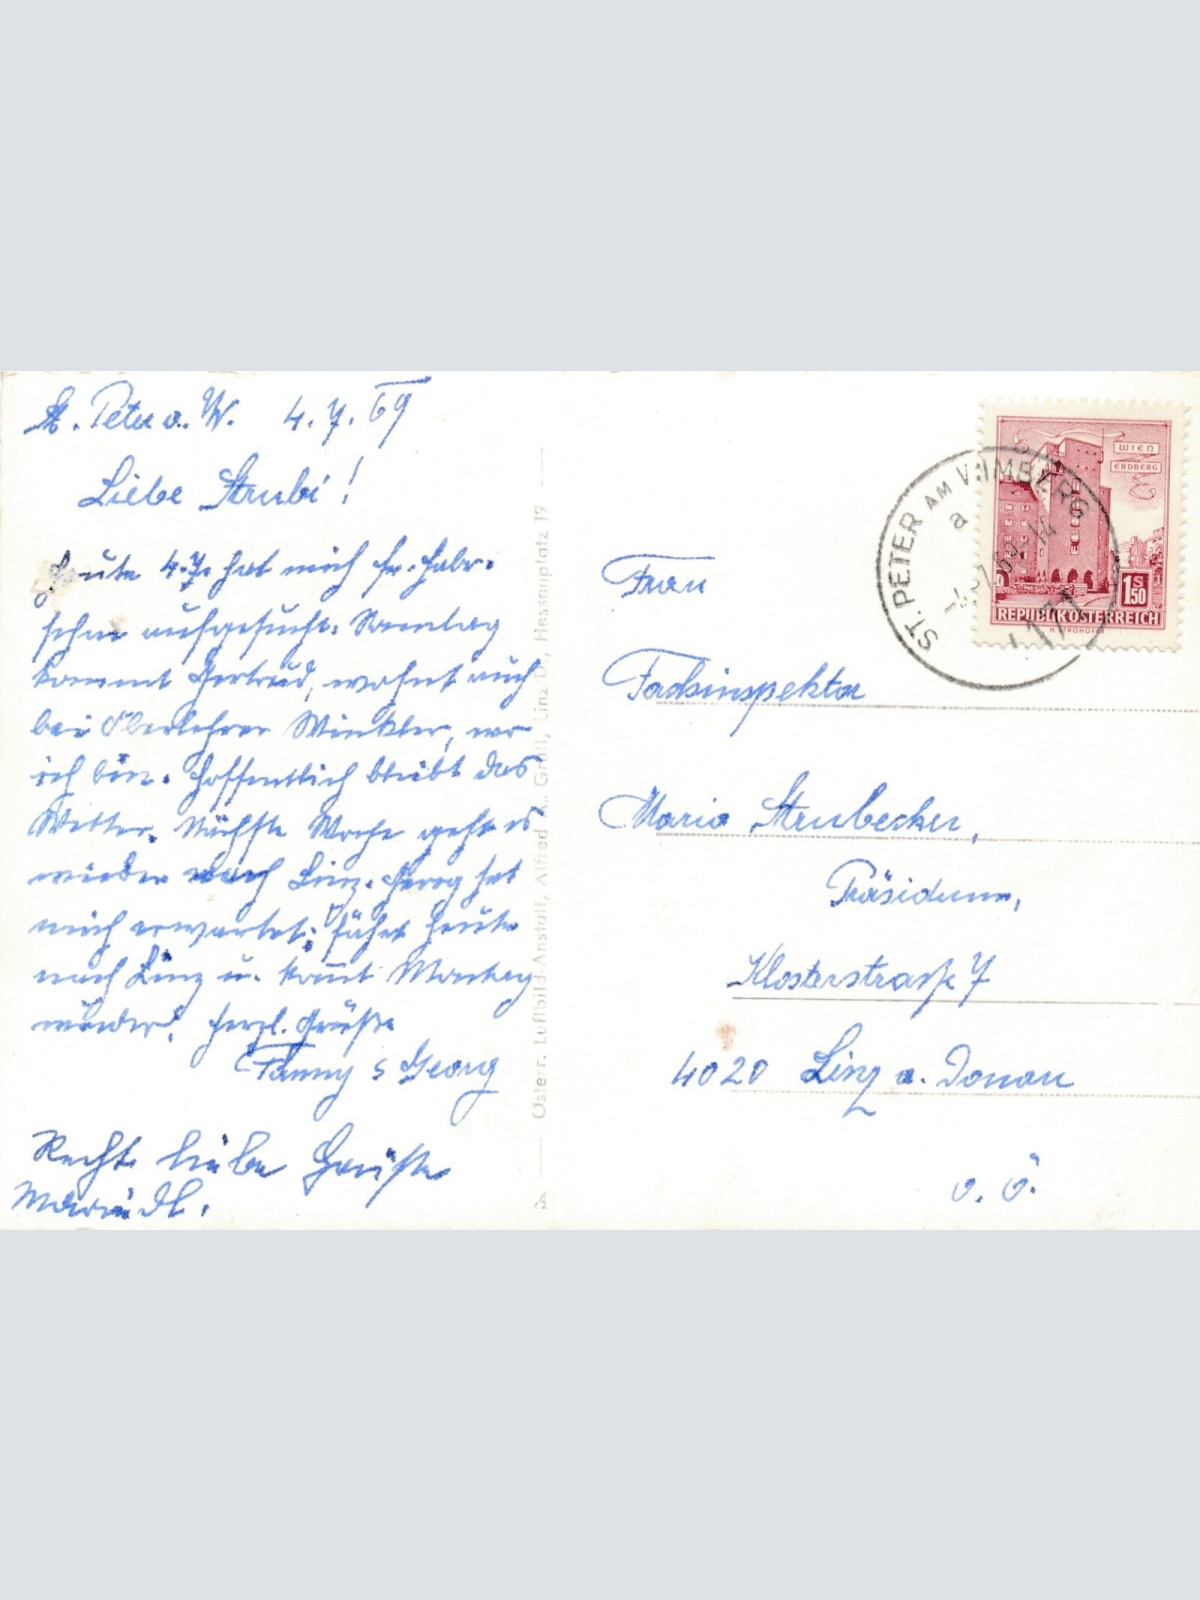 St. Peter a. W. 4.7.69
Liebe Strubi!
Heute 4.7. hat mich Fr. Habr-
sohn aufgesucht. Sonntag
kommt Gertrud, wohnt auch
bei Oberlehrer Winkler, wo
ich bin. Hoffentlich bleibt das
Wetter. Nächste Woche geht es
wieder nach Linz. Georg hat
mich erwartet, fährt heute
nach Linz u. kommt Montag
wieder. Herzl. Grüße
Fanny & Georg
Recht liebe Grüße
Mariedl.
Österr. Luftbild-Anstalt, Alfred A. Groll, Linz D., Hessenplatz 19
ST. PETER AM WIMBERG
a
-4.-7.69-14
4171
WIEN
ERDBERG
1 S 50
REPUBLIK ÖSTERREICH
H. STROHOFER
Frau
Fachinspektor
Maria Strubecker,
Präsidium,
Klosterstraße 7
4020 Linz a. Donau
O.Ö.